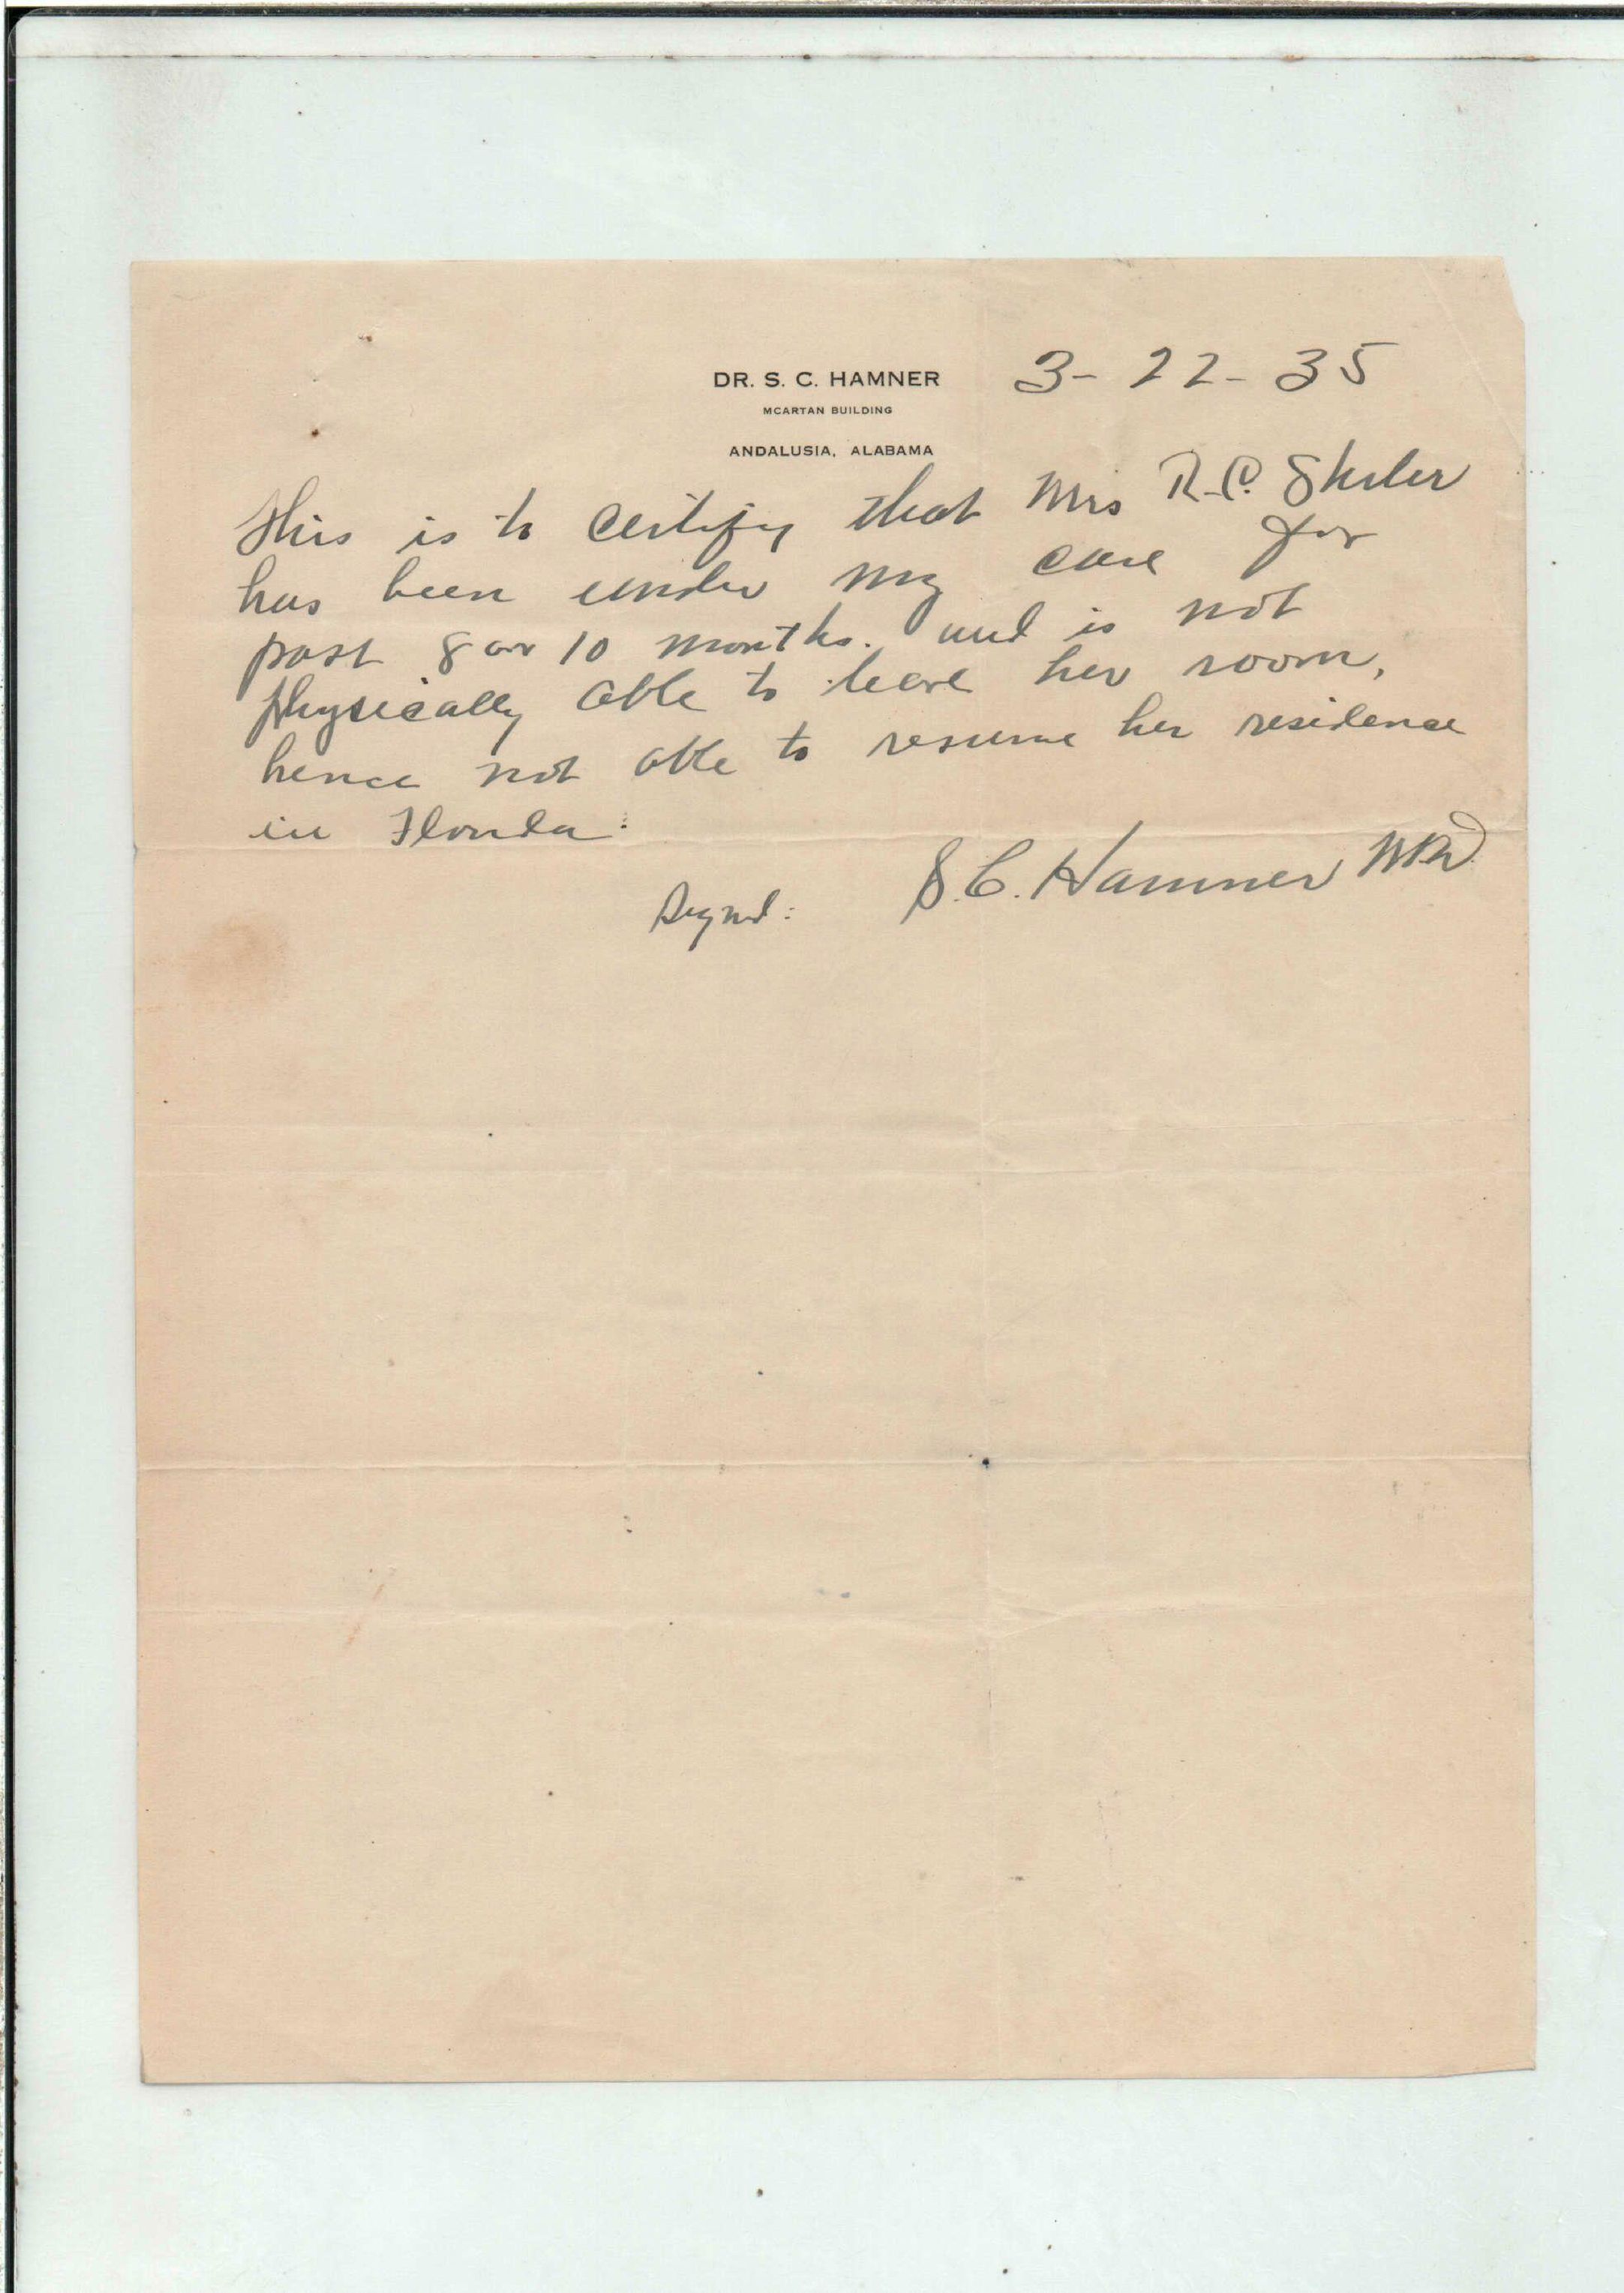 DR. S. C. HAMNER
MCARTAN BUILDING
ANDALUSIA, ALABAMA
3-22-35
This is to certify that Mrs R.C.
has been under my care for
past 8 or 10 months. and is not
physically able to leave her room,
hence not able to resume her residence
in Florida.
Signed: S.C. Hamner MD.